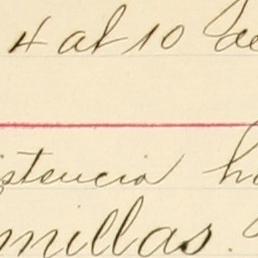 4 al 10 de
istencia ha
millas.